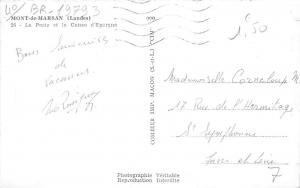 40/BR-19793
MONT-de-MARSAN (Landes)
26 - La Poste et la Caisse d'Epargne
1,50
Bons Souvenirs
de
vacances
COMBIER IMP. MACON (S.-et-L.) "CIM"
Mademoiselle Corneloup M
17 Rue de l'Hermitage
St Symphorien
Indre et Loire
7
Photographie Véritable
Reproduction Interdite